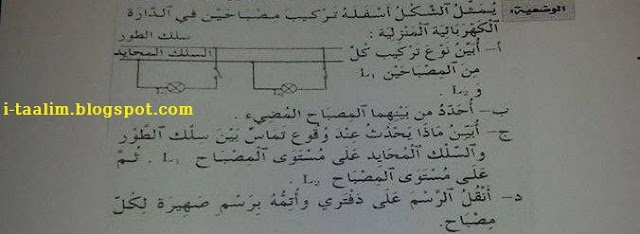 الوضعية:
يُمَثِّلُ الشَّكْلُ أَسْفَلَهُ تَرْكِيبَ مِصْبَاحَيْنِ فِي الدَّارَةِ
الْكَهْرَبَائِيَّةِ الْمَنْزِلِيَّةِ :
سلك الطور
السلك المحايد
أ- أُبَيِّنُ نَوْعَ تَرْكِيبِ كُلٍّ
مِنَ الْمِصْبَاحَيْنِ L₁
وَ L₂ .
L₁
L₂
i-taalim.blogspot.com
ب- أُحَدِّدُ مِنْ بَيْنِهِمَا الْمِصْبَاحَ الْمُضِيءَ .
ج- أُبَيِّنُ مَاذَا يَحْدُثُ عِنْدَ وُقُوعِ تَمَاسٍّ بَيْنَ سِلْكِ الطَّوْرِ
وَالسِّلْكِ الْمُحَايِدِ عَلَى مُسْتَوَى الْمِصْبَاحِ L₁ . ثُمَّ
عَلَى مُسْتَوَى الْمِصْبَاحِ L₂ .
د- أَنْقُلُ الرَّسْمَ عَلَى دَفْتَرِي وَأُتِمُّهُ بِرَسْمِ صَهِيرَةٍ لِكُلِّ
مِصْبَاحٍ.